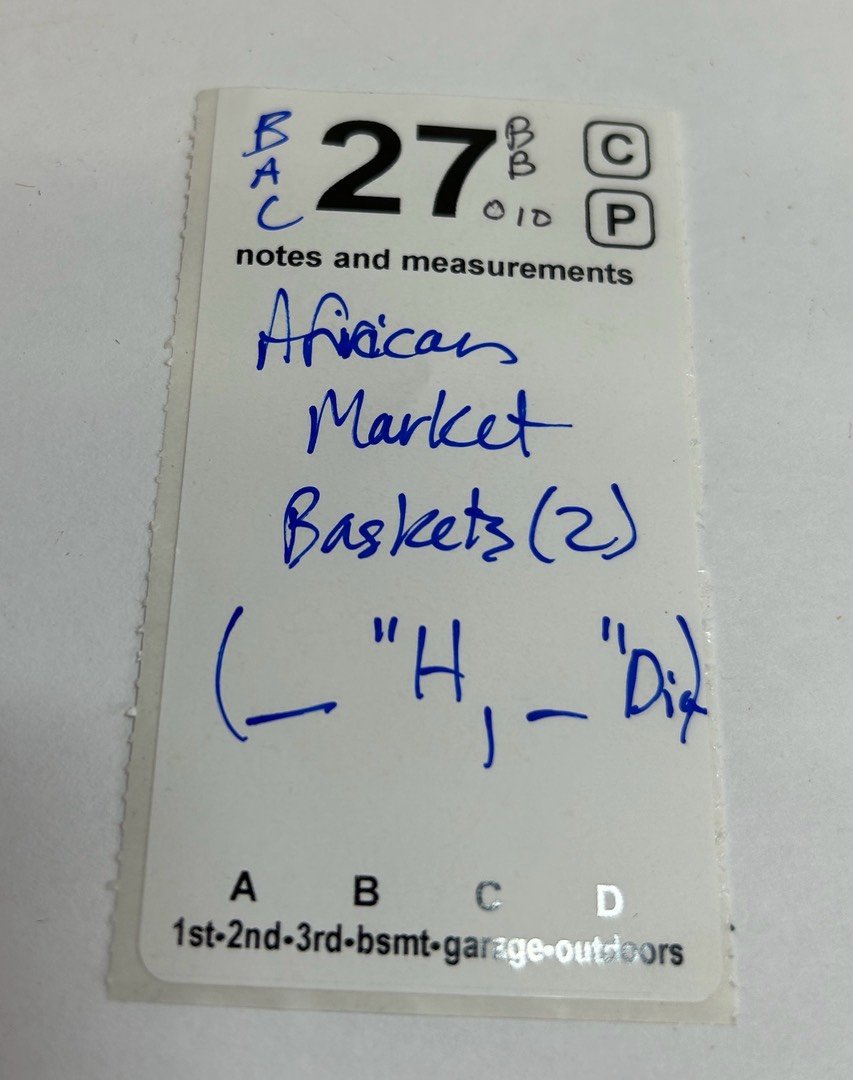 B
A
C
27
B
B
010
C
P
notes and measurements
African
Market
Baskets (2)
(_ "H, _ "Dia)
A B C D
1st•2nd•3rd•bsmt•garage•outdoors